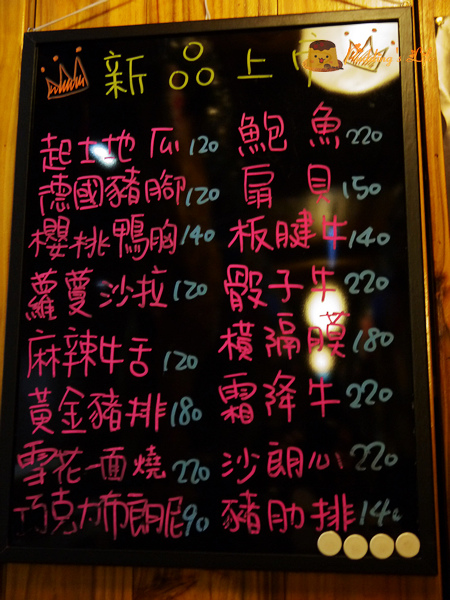 新品上市
起士地瓜120
德國豬腳120
櫻桃鴨胸140
蘿蔓沙拉120
麻辣牛舌120
黃金豬排180
雪花一面燒220
巧克力布朗尼90
鮑魚220
扇貝150
板腱牛140
骰子牛220
橫隔膜180
霜降牛220
沙朗心220
豬肋排140